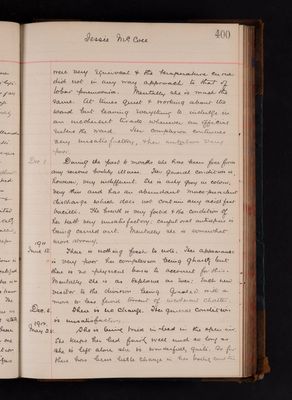 Jessie McA Coll
400
were very equivocal & the temperature curve
did not in any way approach to that of
lobar pneumonia. Mentally she is much the
same. At times quiet & working about the
ward but leaving everything to indulge in
an incoherent tirade whenever an officer
enters the ward. Her complexion continues
very unsatisfactory, her nutrition very
poor.
Dec 8. During the past 6 months she has been free from
any serious bodily illness. Her general condition is,
however, very indifferent. She is ashy grey in colour,
very thin and has an abundant muco-purulent
discharge which does not contain any acid fast
bacilli. The breath is very foetid & the condition of
the teeth very unsatisfactory.
being carried out. Mentally she is somewhat
more
1911
June 12. There is nothing fresh to note. Her appearance
is very poor her complexion being ghastly but
there is no physical basis to account for this.
Mentally she is as
visitor to the division being greeted with a
more or less fluid torrent of incoherent chatter.
Dec. 6. There is no change. Her general condition
is unsatisfactory.
1912.
May 28. She is being treated in bed in the open air
She keeps her bed fairly well and so long as
she is left alone she is wonderfully quiet. So far
there has been little change in her bodily condition